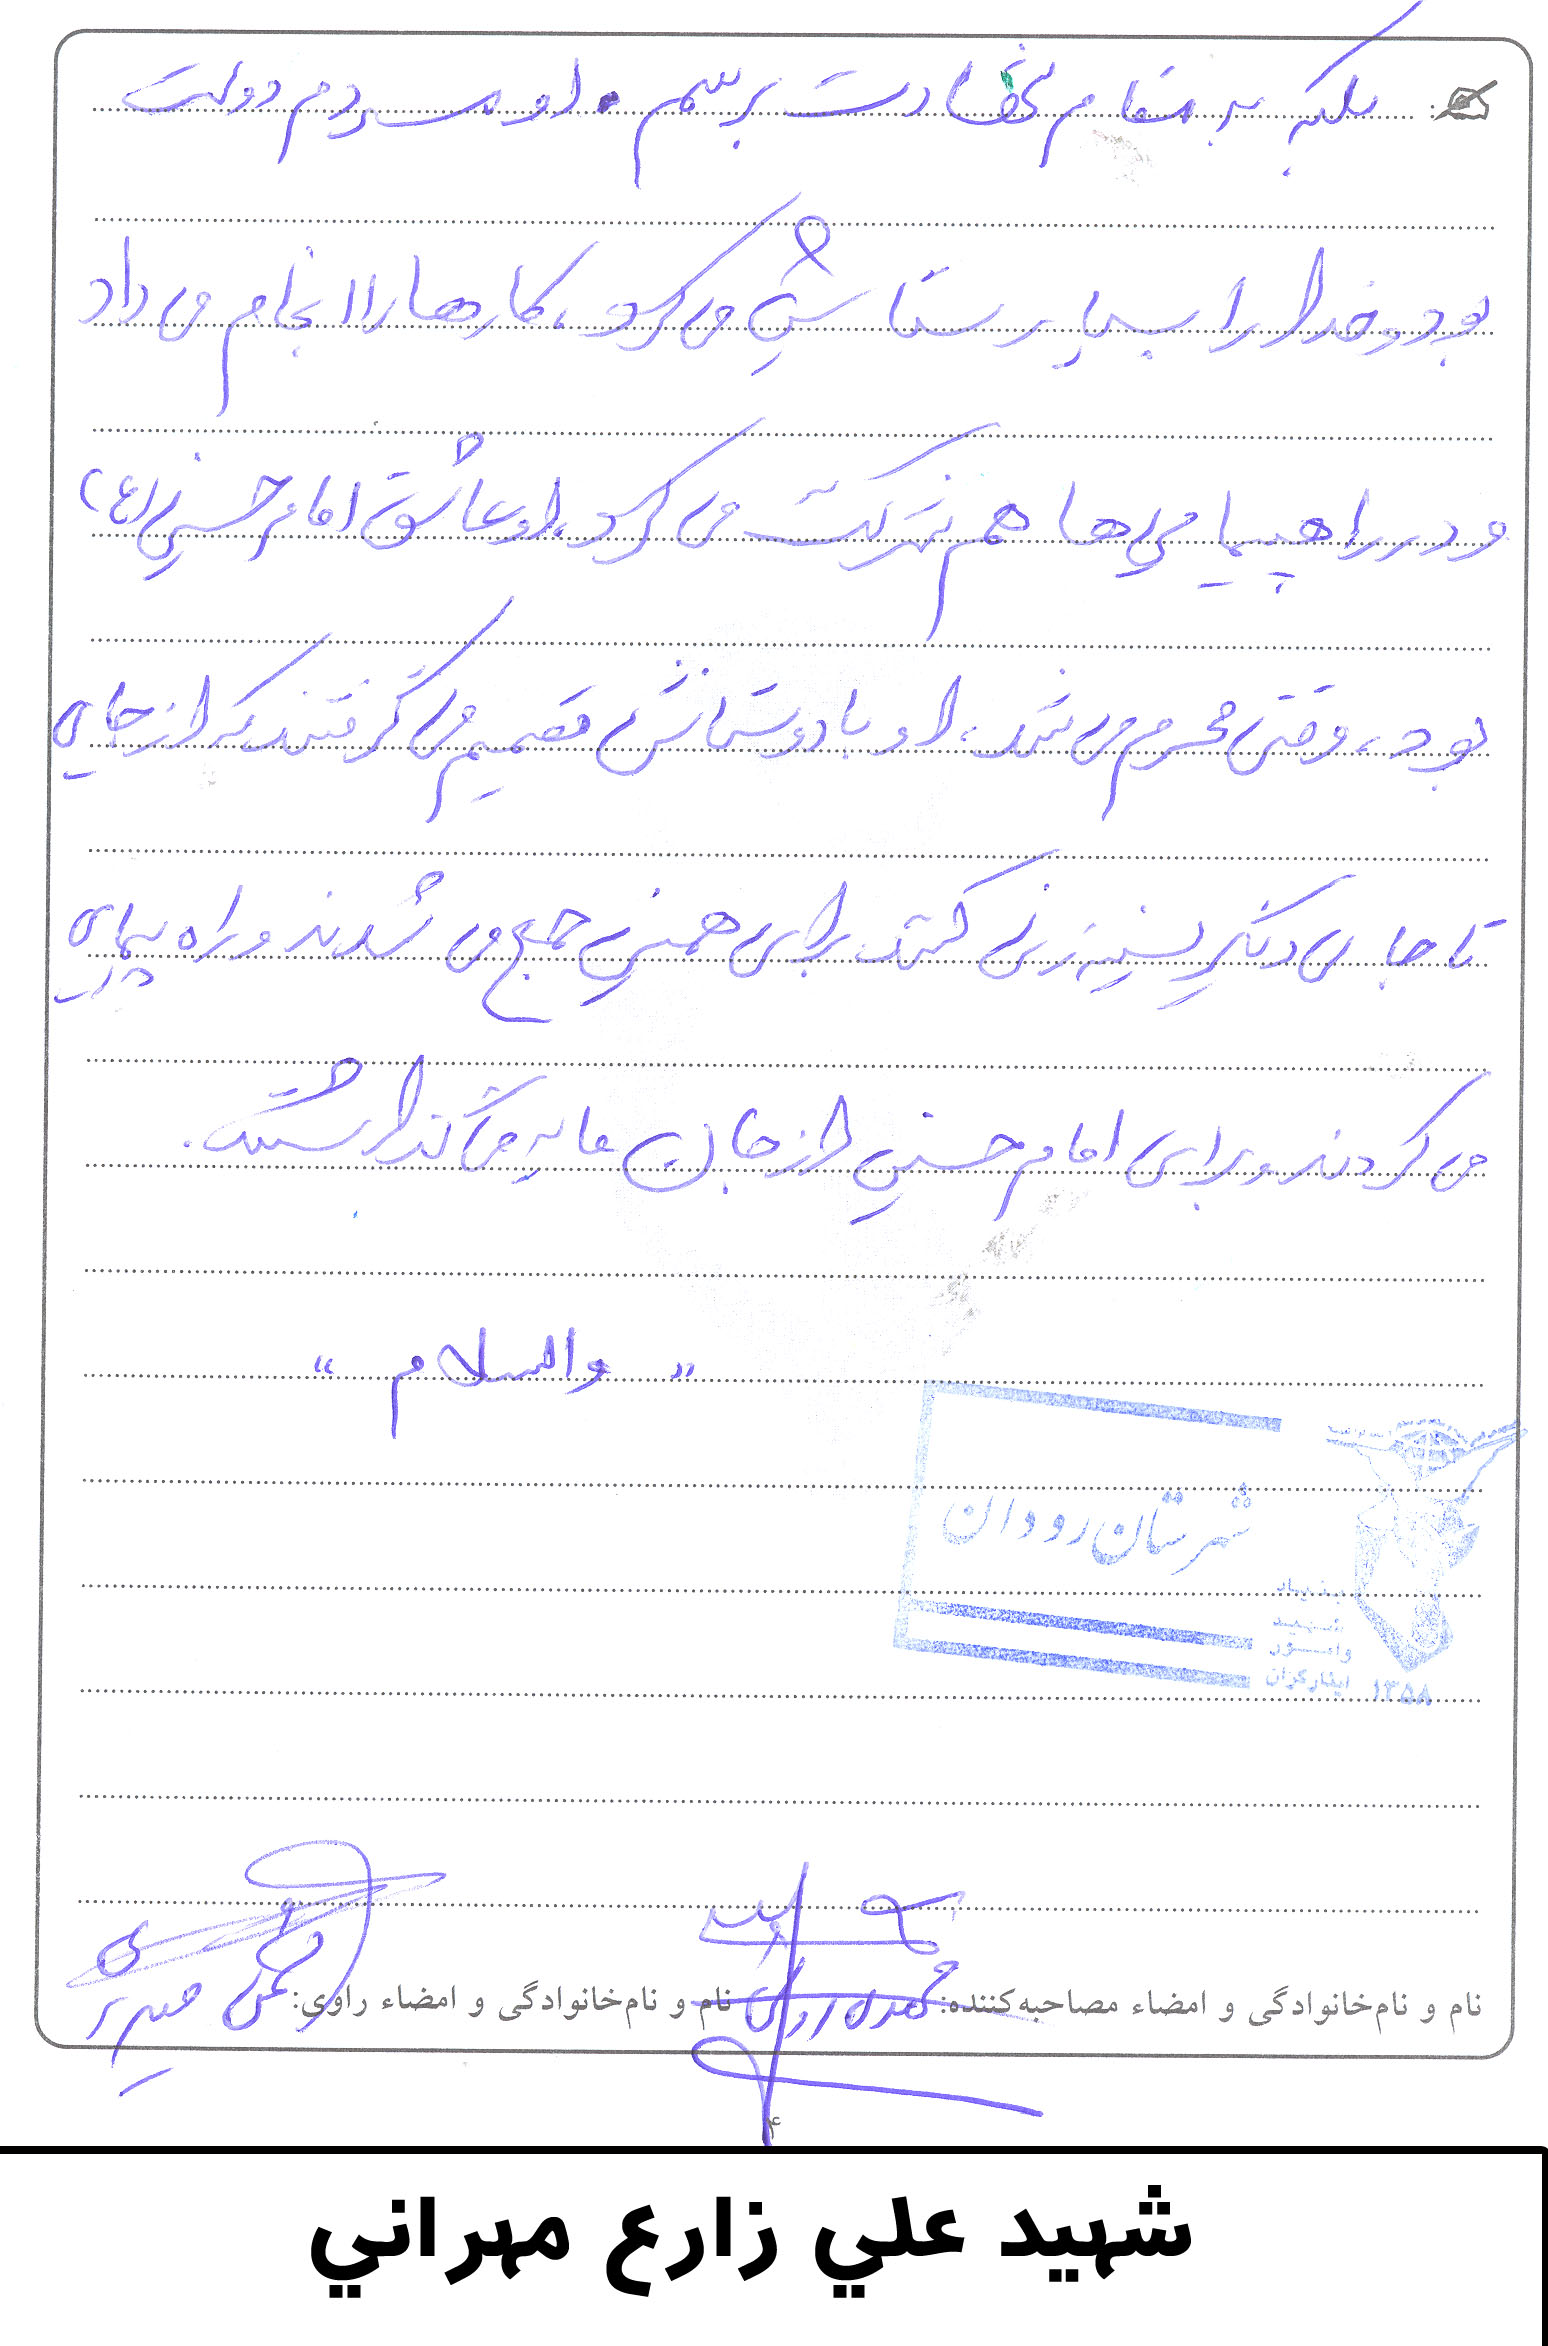 بلکه به مقام شهادت برسم. او مردم دوست
بود و خدا را بسیار ستایش می کرد، کارها را انجام می داد
و در راهپیمایی ها هم شرکت می کرد، او عاشق امام حسین (ع)
بود، وقتی محرم می شد، او با دوستانش تصمیم می گرفتند که از جایی
تا جای دیگر سینه زنی کنند برای همین جمع می شدند و راه پیمایی
می کردند و برای امام حسین از جان مایه می گذاشتند.
" والسلام "
شهرستان رودان
بنیاد
شهید
وامور
ایثارگران
۱۳۵۸
نام و نام‌خانوادگی و امضاء مصاحبه‌کننده: نام و نام‌خانوادگی و امضاء راوی:
۴
شهيد علي زارع مهراني